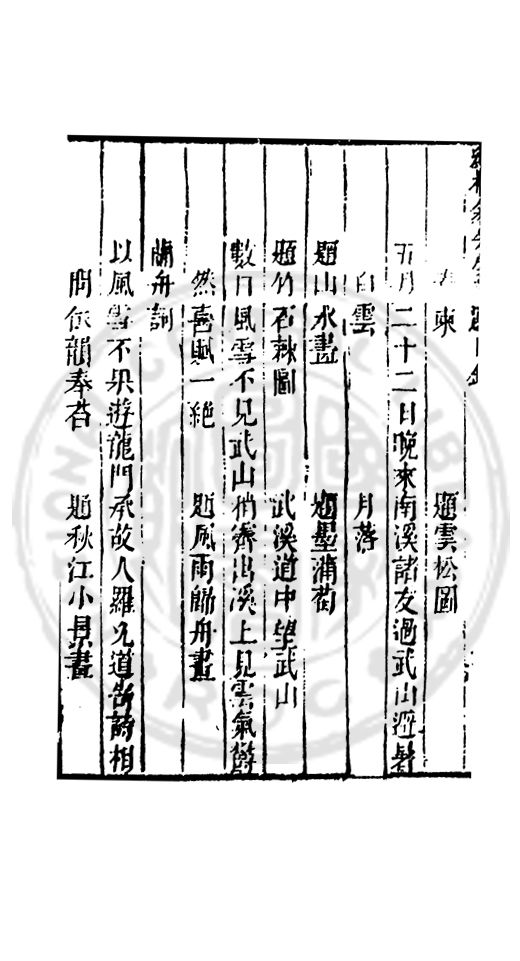 柬 題雲松圖
五月二十二日晚來南溪諸友過武山避暑
白雲 月落
題山水畫 題墨蒲萄
題竹石棘圖 武溪道中望武山
數日風雪不見武山稍霽出溪上見雲氣欝
然喜賦一絶 題風雨歸舟畫
蘭舟詞
以風雪不果遊龍門承故人羅允道寄詩相
問依韻奉答 題秋江小景畫